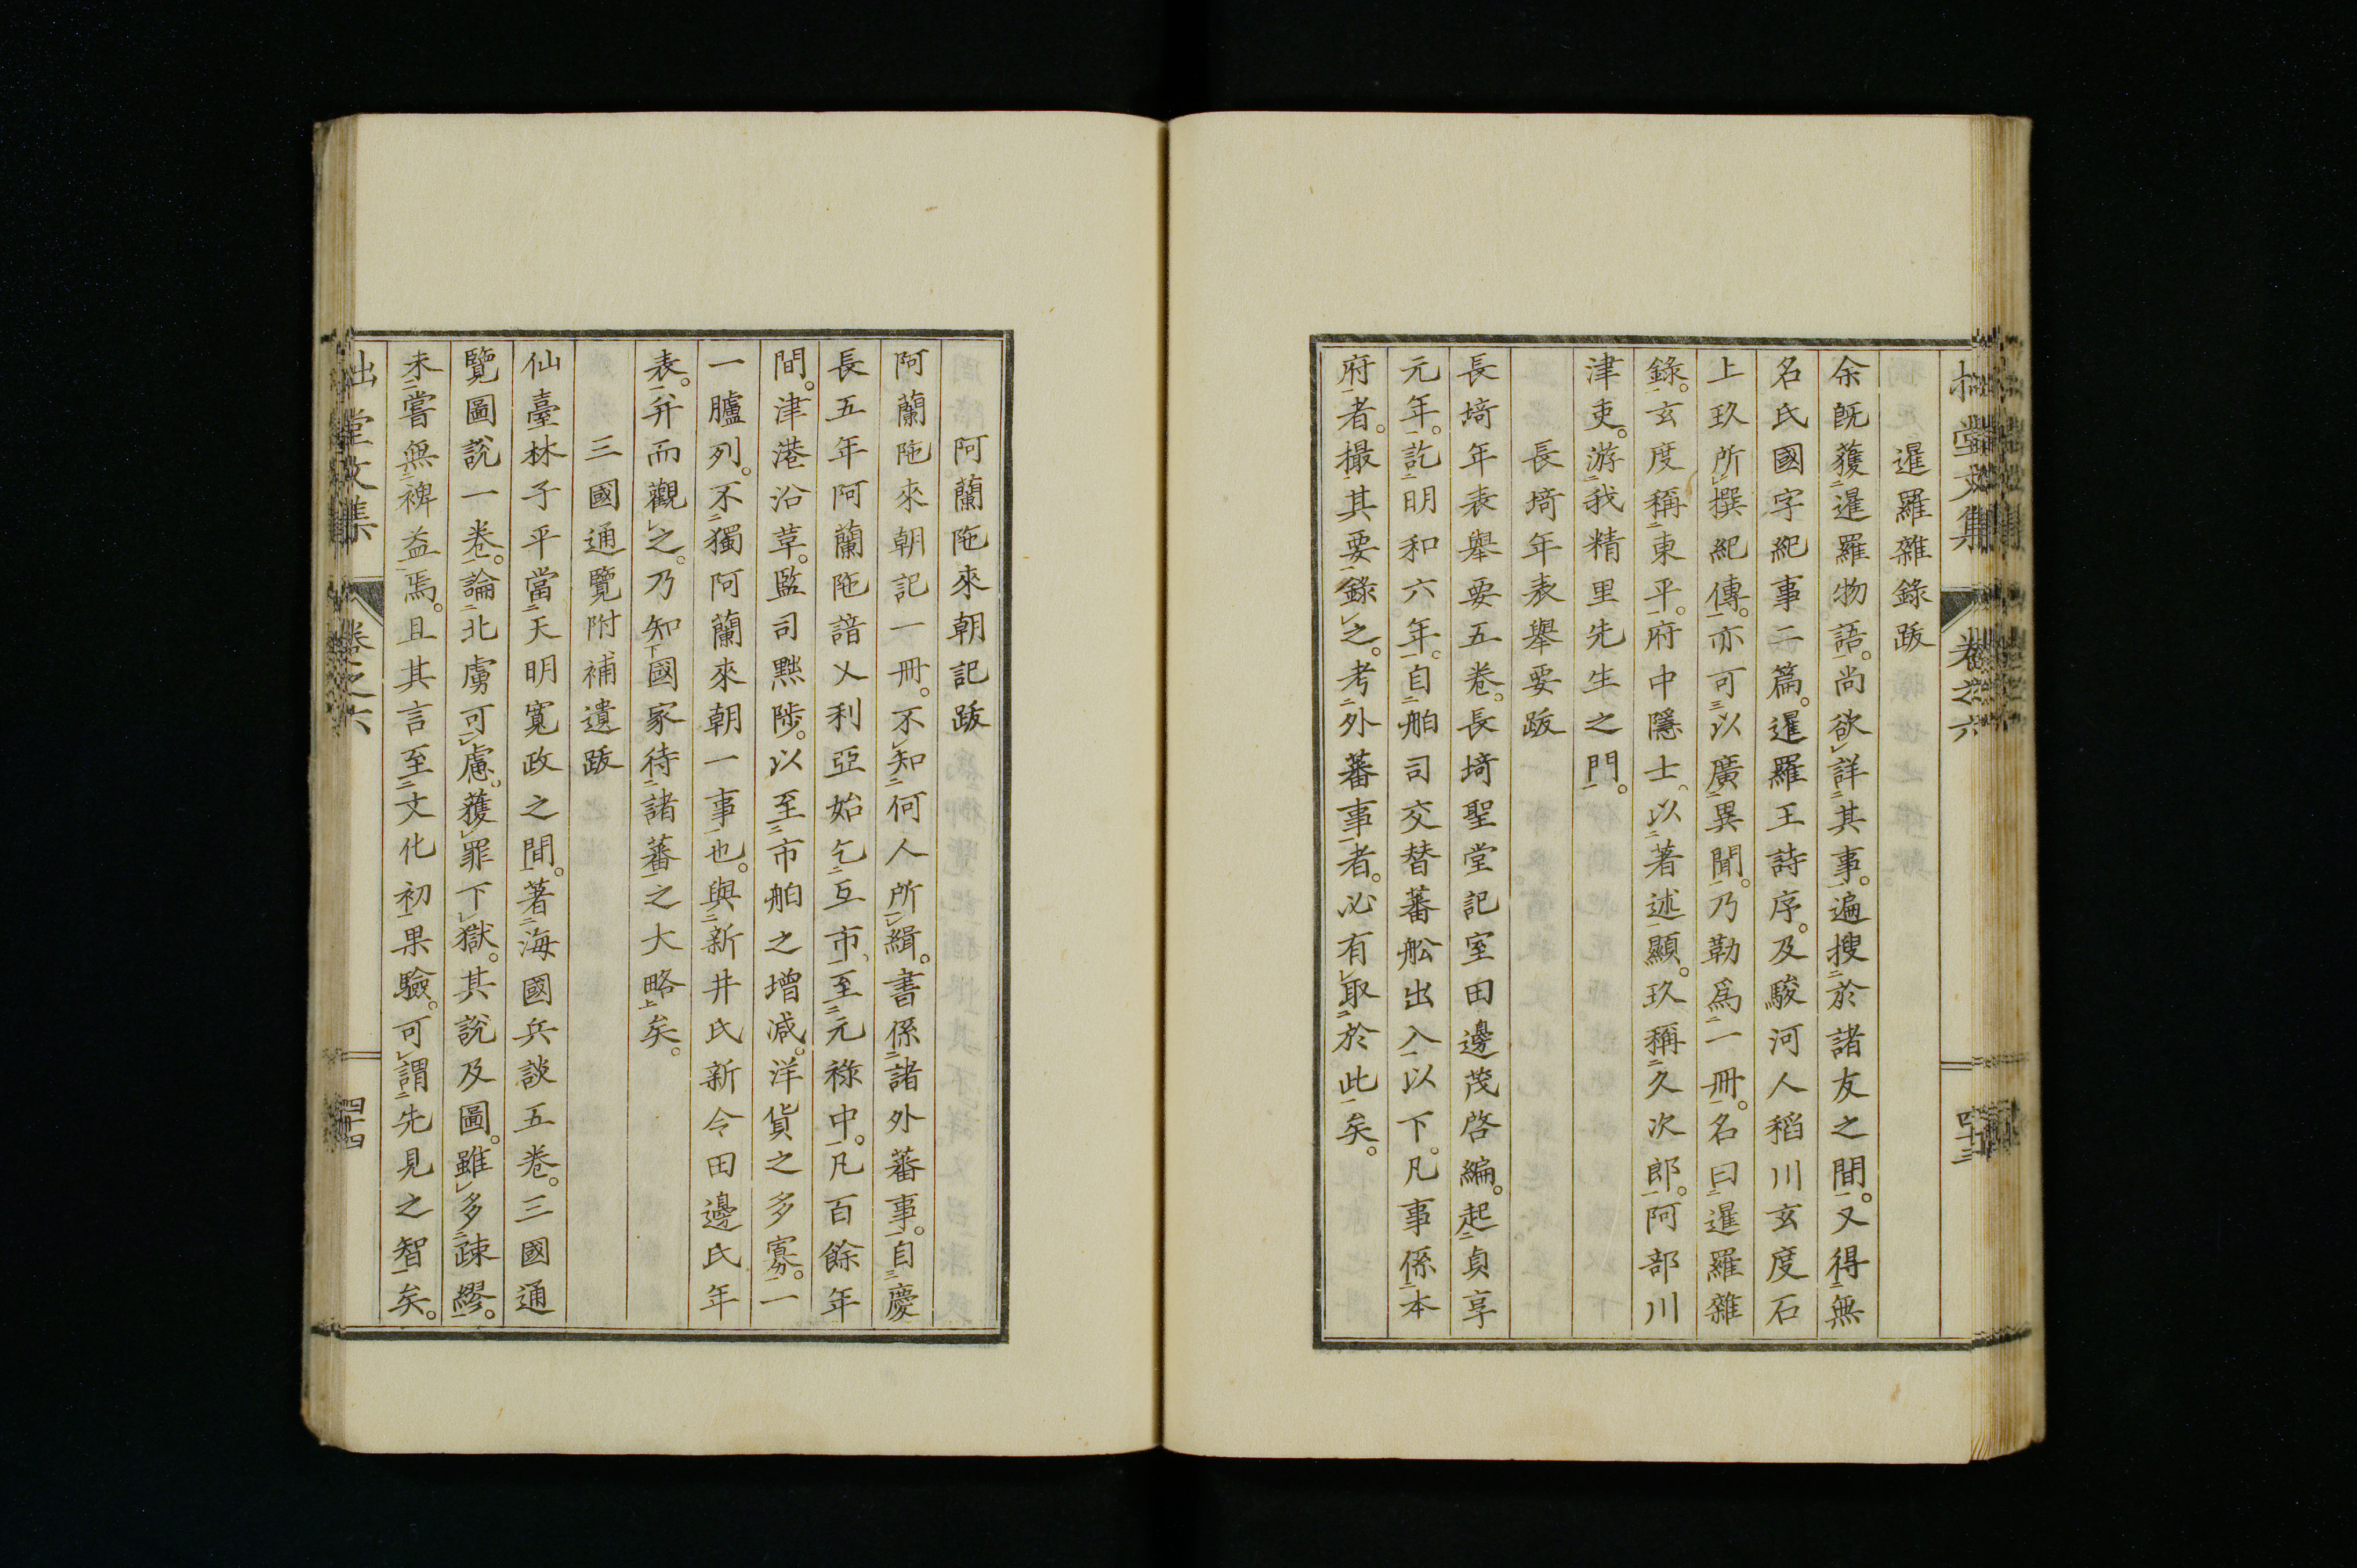 拙堂文集 卷之六 四十三
暹羅雜錄跋
余既獲暹羅物語。尚欲詳其事。遍搜於諸友之間。又得無
名氏國字紀事二篇。暹羅王詩序。及駿河人稻川玄度石
上玖所撰紀傳。亦可以廣異聞。乃勒爲一冊。名曰暹羅雜
錄。玄度稱東平。府中隱士。以著述顯。玖稱久次郎。阿部川
津吏。游我精里先生之門。
長埼年表舉要跋
長埼年表舉要五卷。長埼聖堂記室田邊茂啓編。起貞享
元年。訖明和六年。自舶司交替蕃舩出入以下。凡事係本
府者。撮其要錄之。考外蕃事者。必有取於此矣。
阿蘭陁來朝記跋
阿蘭陁來朝記一冊。不知何人所緝。書係諸外蕃事。自慶
長五年阿蘭陁諳乂利亞始乞互市、至元祿中。凡百餘年
間。津港沿革。監司黜陟。以至市舶之增減。洋貨之多寡。一
一臚列。不獨阿蘭來朝一事也。與新井氏新令田邊氏年
表。并而觀之。乃知國家待諸蕃之大略矣。
三國通覽附補遺跋
仙臺林子平當天明寬政之間。著海國兵談五卷。三國通
覽圖說一卷。論北虜可慮。獲罪下獄。其說及圖。雖多疎繆。
未嘗無裨益焉。且其言至文化初果驗。可謂先見之智矣。
拙堂文集 卷之六 四十四